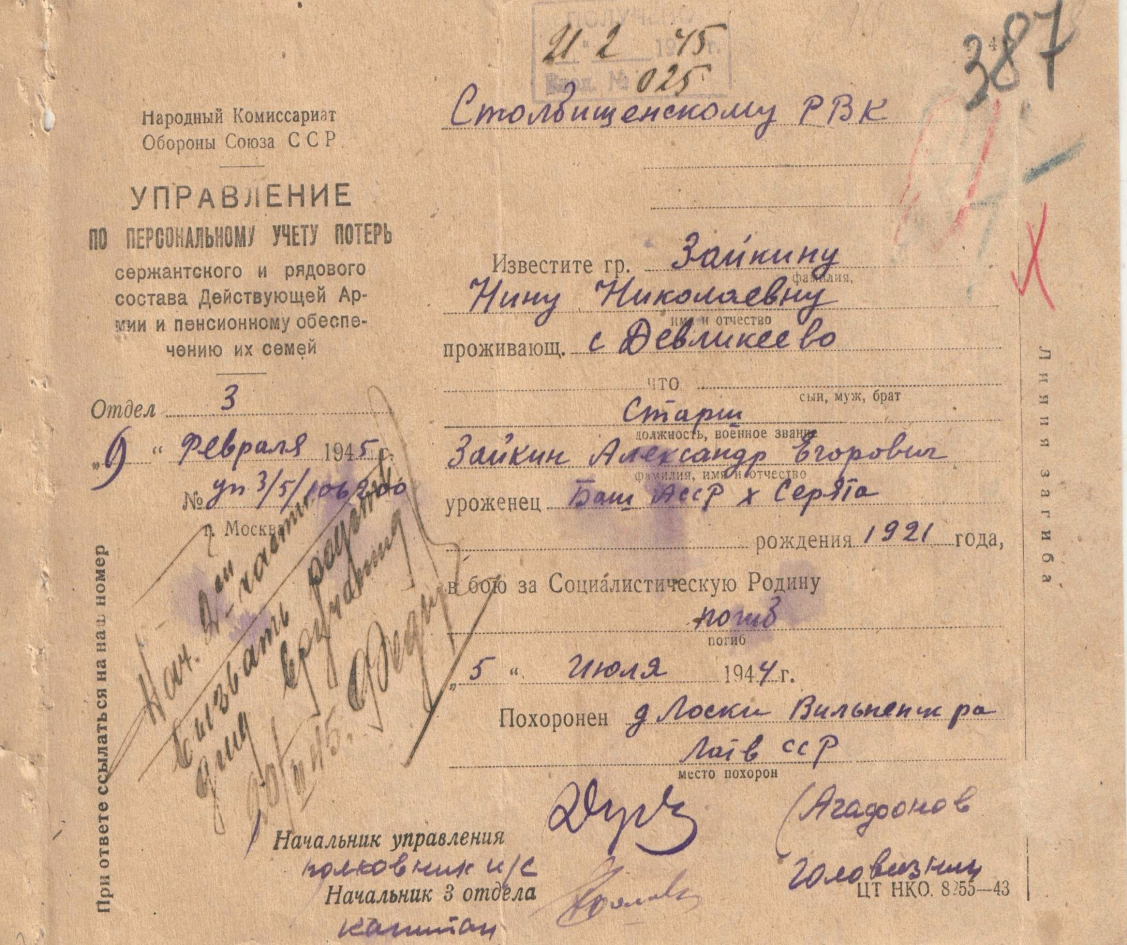 ПОЛУЧЕНО
21 " 2 1945 г.
Вход. № 025
387
Народный Комиссариат
Обороны Союза ССР
УПРАВЛЕНИЕ
ПО ПЕРСОНАЛЬНОМУ УЧЕТУ ПОТЕРЬ
сержантского и рядового
состава Действующей Ар-
мии и пенсионному обеспе-
чению их семей
Отдел 3
„9 “ Февраля 1945 г.
№ уп 3/5/106200
г. Москва
При ответе ссылаться на наш номер
Нач. 2ой части
Вызвать родствен
для вручения
20/II 45.
Столбищенскому РВК
Известите гр. Зайкину
фамилия,
Нину Николаевну
имя и отчество
проживающ. с Девликеево
что
сын, муж, брат
Старш
должность, военное звание
Зайкин Александр Егорович
фамилия, имя и отчество
уроженец Баш АССР х Серята
рождения 1921 года,
в бою за Социалистическую Родину
погиб
погиб
„5 “ Июля 1944 г.
Похоронен д Лоски Вильненск ра
Латв ССР
место похорон
Начальник управления
полковник и/с
(Агафонов
Начальник 3 отдела
капитан
Головизнин
ЦТ НКО. 8255—43
Линия загиба